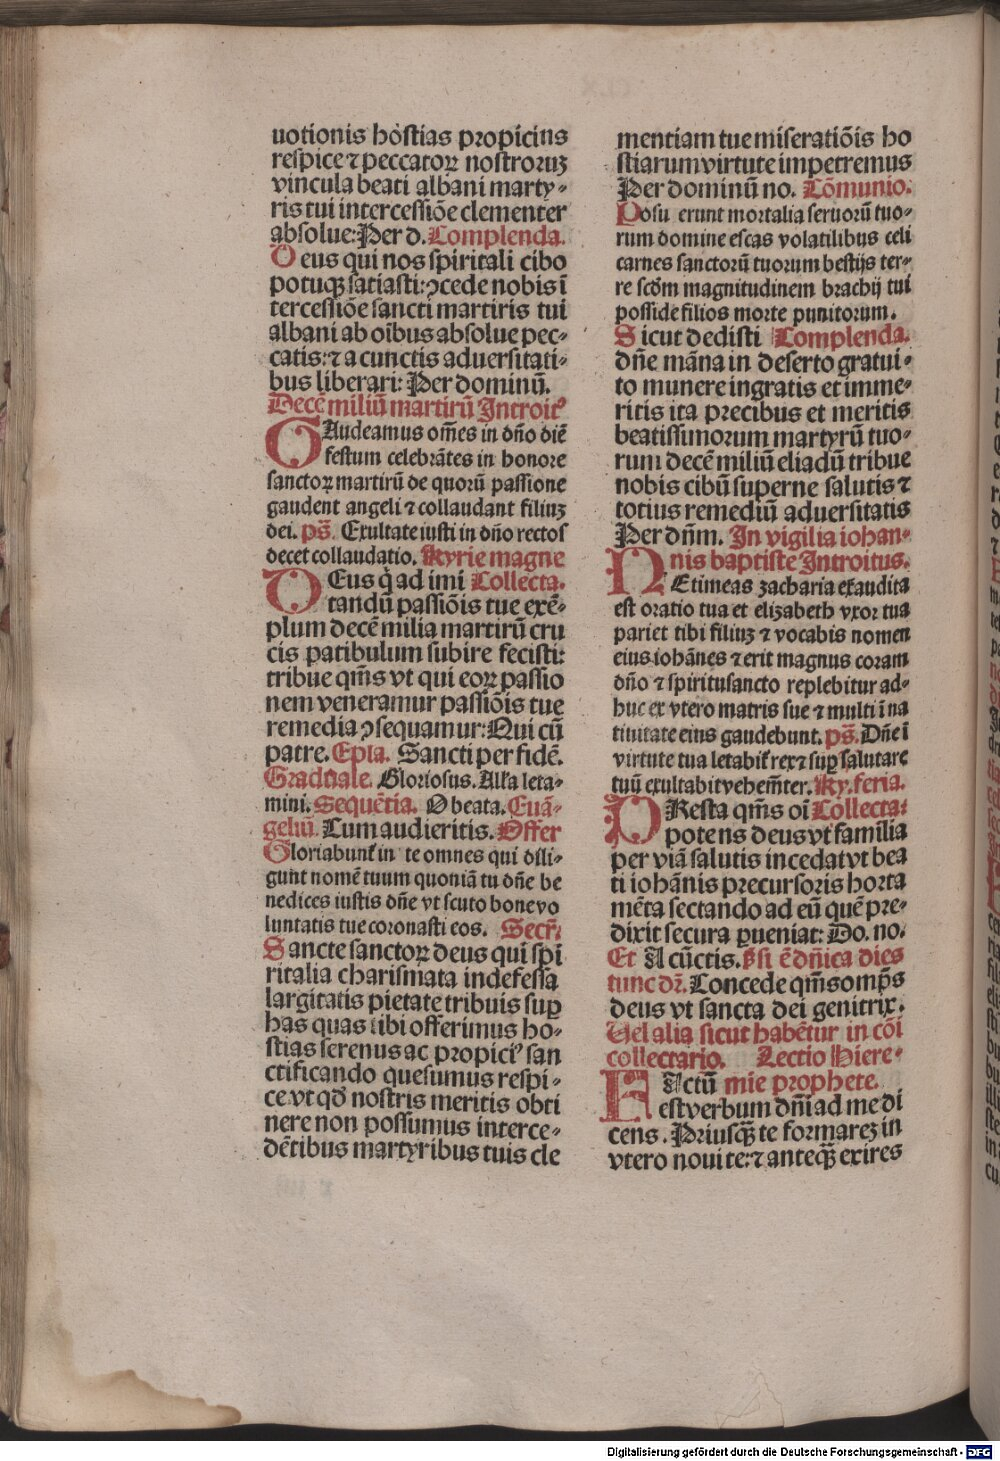 uotionis hostias propicius
respice ⁊ peccatoꝝ nostroruꝫ
vincula beati albani marty-
ris tui intercessiõe clementer
absolue: Per d. Complenda.
Deus qui nos spiritali cibo
potuqꝫ satiasti: ꝯcede nobis ĩ
tercessiõe sancti martiris tui
albani ab oĩbus absolue pec-
catis: ⁊ a cunctis aduersitati-
bus liberari: Per dominũ.
Decẽ miliũ martirũ Introitꝰ
GAudeamus om̃es in dño diẽ
festum celebrãtes in honore
sanctoꝝ martirũ de quorũ passione
gaudent angeli ⁊ collaudant filiuꝫ
dei. ps̃. Exultate iusti in dño rectos
decet collaudatio. Kyrie magne
DEus q̇ ad imi Collecta.
tandũ passiõis tue exẽ-
plum decẽ milia martirũ cru
cis patibulum subire fecisti:
tribue qm̃s vt qui eoꝝ passio
nem veneramur passiõis tue
remedia ꝯsequamur: Qui cũ
patre. Epl̃a. Sancti per fidẽ.
Graduale. Gloriosus. Alľa leta-
mini. Sequẽtia. O beata. Euã-
geliũ. Cum audieritis. Offer
Gloriabunt̃ in te omnes qui dili-
gunt nomẽ tuum quoniã tu dñe be
nedices iustis dñe vt scuto bone vo
luntatis tue coronasti eos. Secr̃.
Sancte sanctoꝝ deus qui spi
ritalia charismata indefessa
largitatis pietate tribuis suꝑ
has quas tibi offerimus ho-
stias serenus ac propiciꝰ san
ctificando quesumus respi-
ce. vt qđ nostris meritis obti
nere non possumus interce-
dẽtibus martyribus tuis cle
mentiam tue miseratiõis ho
stiarum virtute impetremus
Per dominũ no. Cõmunio.
Posuerunt mortalia seruorũ tuo-
rum domine escas volatilibus celi
carnes sanctorũ tuorum bestijs ter-
re scđm magnitudinem brachij tui
posside filios morte punitorum.
Sicut dedisti Complenda.
dñe mãna in deserto gratui-
to munere ingratis et imme-
ritis ita precibus et meritis
beatissimorum martyrũ tuo-
rum decẽ miliũ eliadũ tribue
nobis cibũ superne salutis ⁊
totius remediũ aduersitatis
Per dñm. In vigilia iohan-
nis baptiste Introitus.
NEtimeas zacharia exaudita
est oratio tua et elizabeth vxor tua
pariet tibi filiuꝫ ⁊ vocabis nomen
eius iohãnes ⁊ erit magnus coram
dño ⁊ spiritusancto replebitur ad-
huc ex vtero matris sue ⁊ multi ĩ na
tiuitate eius gaudebunt. ps̃. Dñe ĩ
virtute tua letabit̃ rex ⁊ suꝑ salutare
tuũ exultabit vehem̃ter. Ky. feria.
PResta qm̃s oĩ Collecta:
potens deus vt familia
per viã salutis incedat vt bea
ti iohãnis precursoris horta
mẽta sectando ad eũ quẽ pre-
dixit secura ꝑueniat: Do. no.
Et A cũctis. Ꝟsi ẽ dñica dies
tunc dꝛ̃. Concede qm̃s omp̃s
deus vt sancta dei genitrix.
Uel alia sicut habẽtur in cõi
collectario. Lectio Hiere-
FActũ mie prophete.
est verbum dñi ad me di
cens. Priusqꝫ̃ te formareꝫ in
vtero noui te: ⁊ anteqꝫ̃ exires
Digitalisierung gefördert durch die Deutsche Forschungsgemeinschaft - DFG